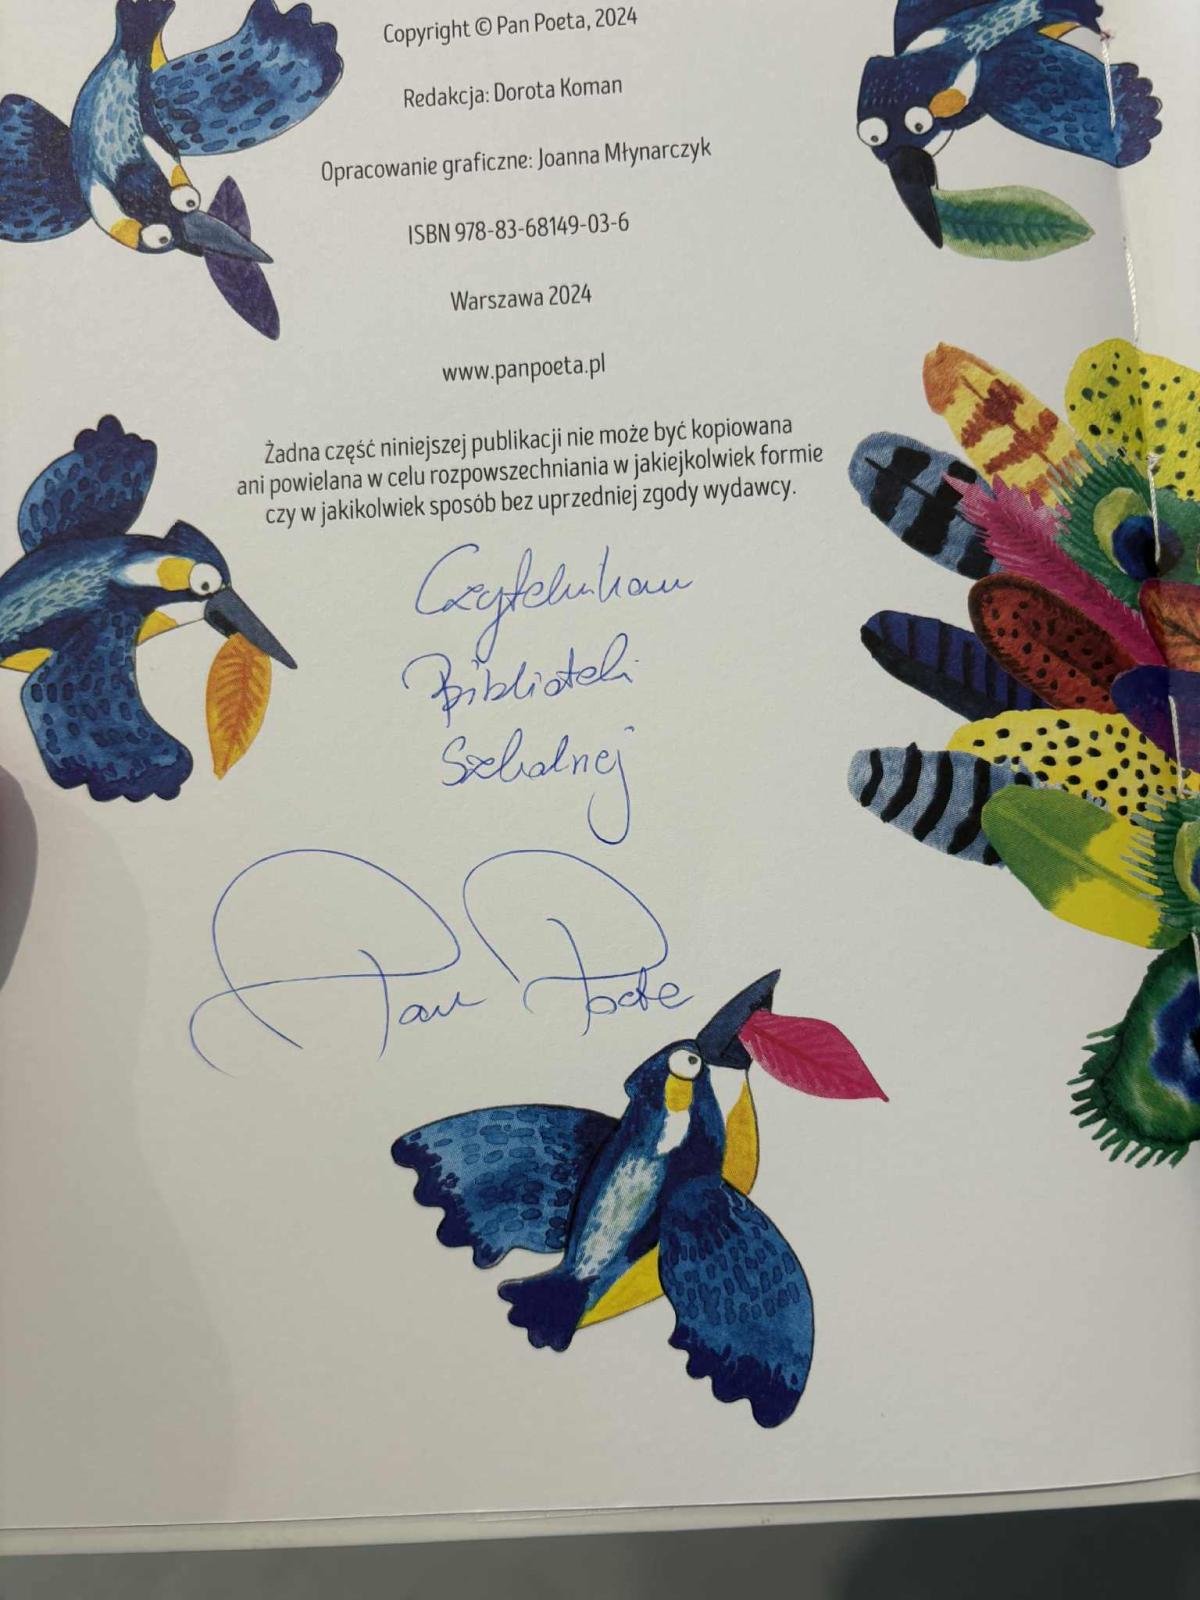 Copyright © Pan Poeta, 2024
Redakcja: Dorota Koman
Opracowanie graficzne: Joanna Młynarczyk
ISBN 978-83-68149-03-6
Warszawa 2024
www.panpoeta.pl
Żadna część niniejszej publikacji nie może być kopiowana
ani powielana w celu rozpowszechniania w jakiejkolwiek formie
czy w jakikolwiek sposób bez uprzedniej zgody wydawcy.
Czytelnikom
Biblioteki
Szkolnej
Pan Poeta